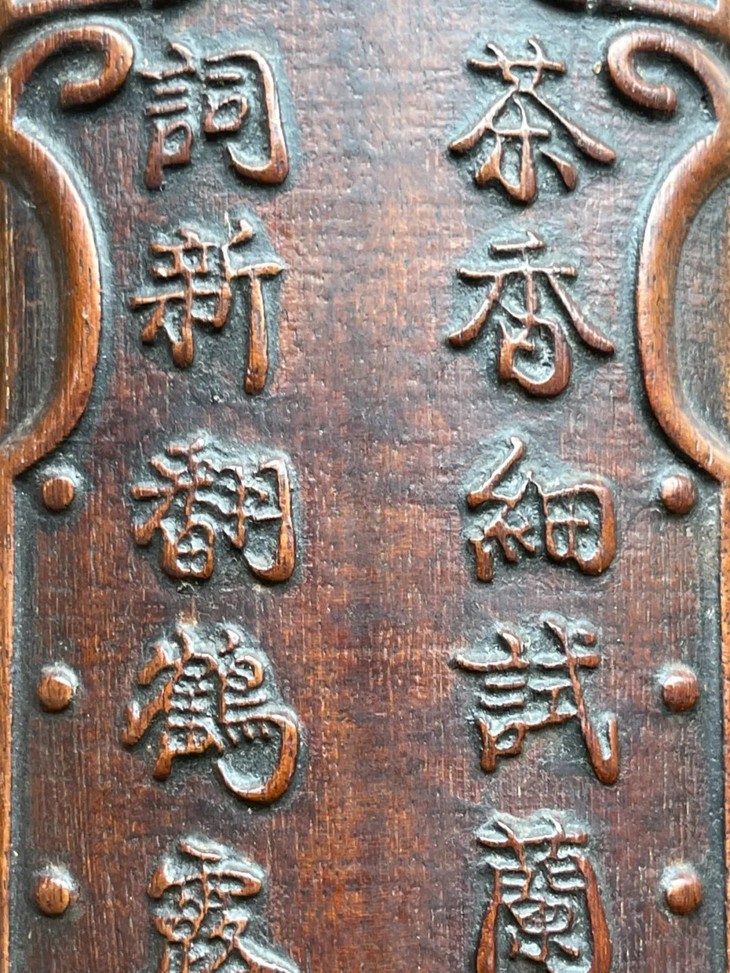 茶香細試蘭
詞新翻鶴